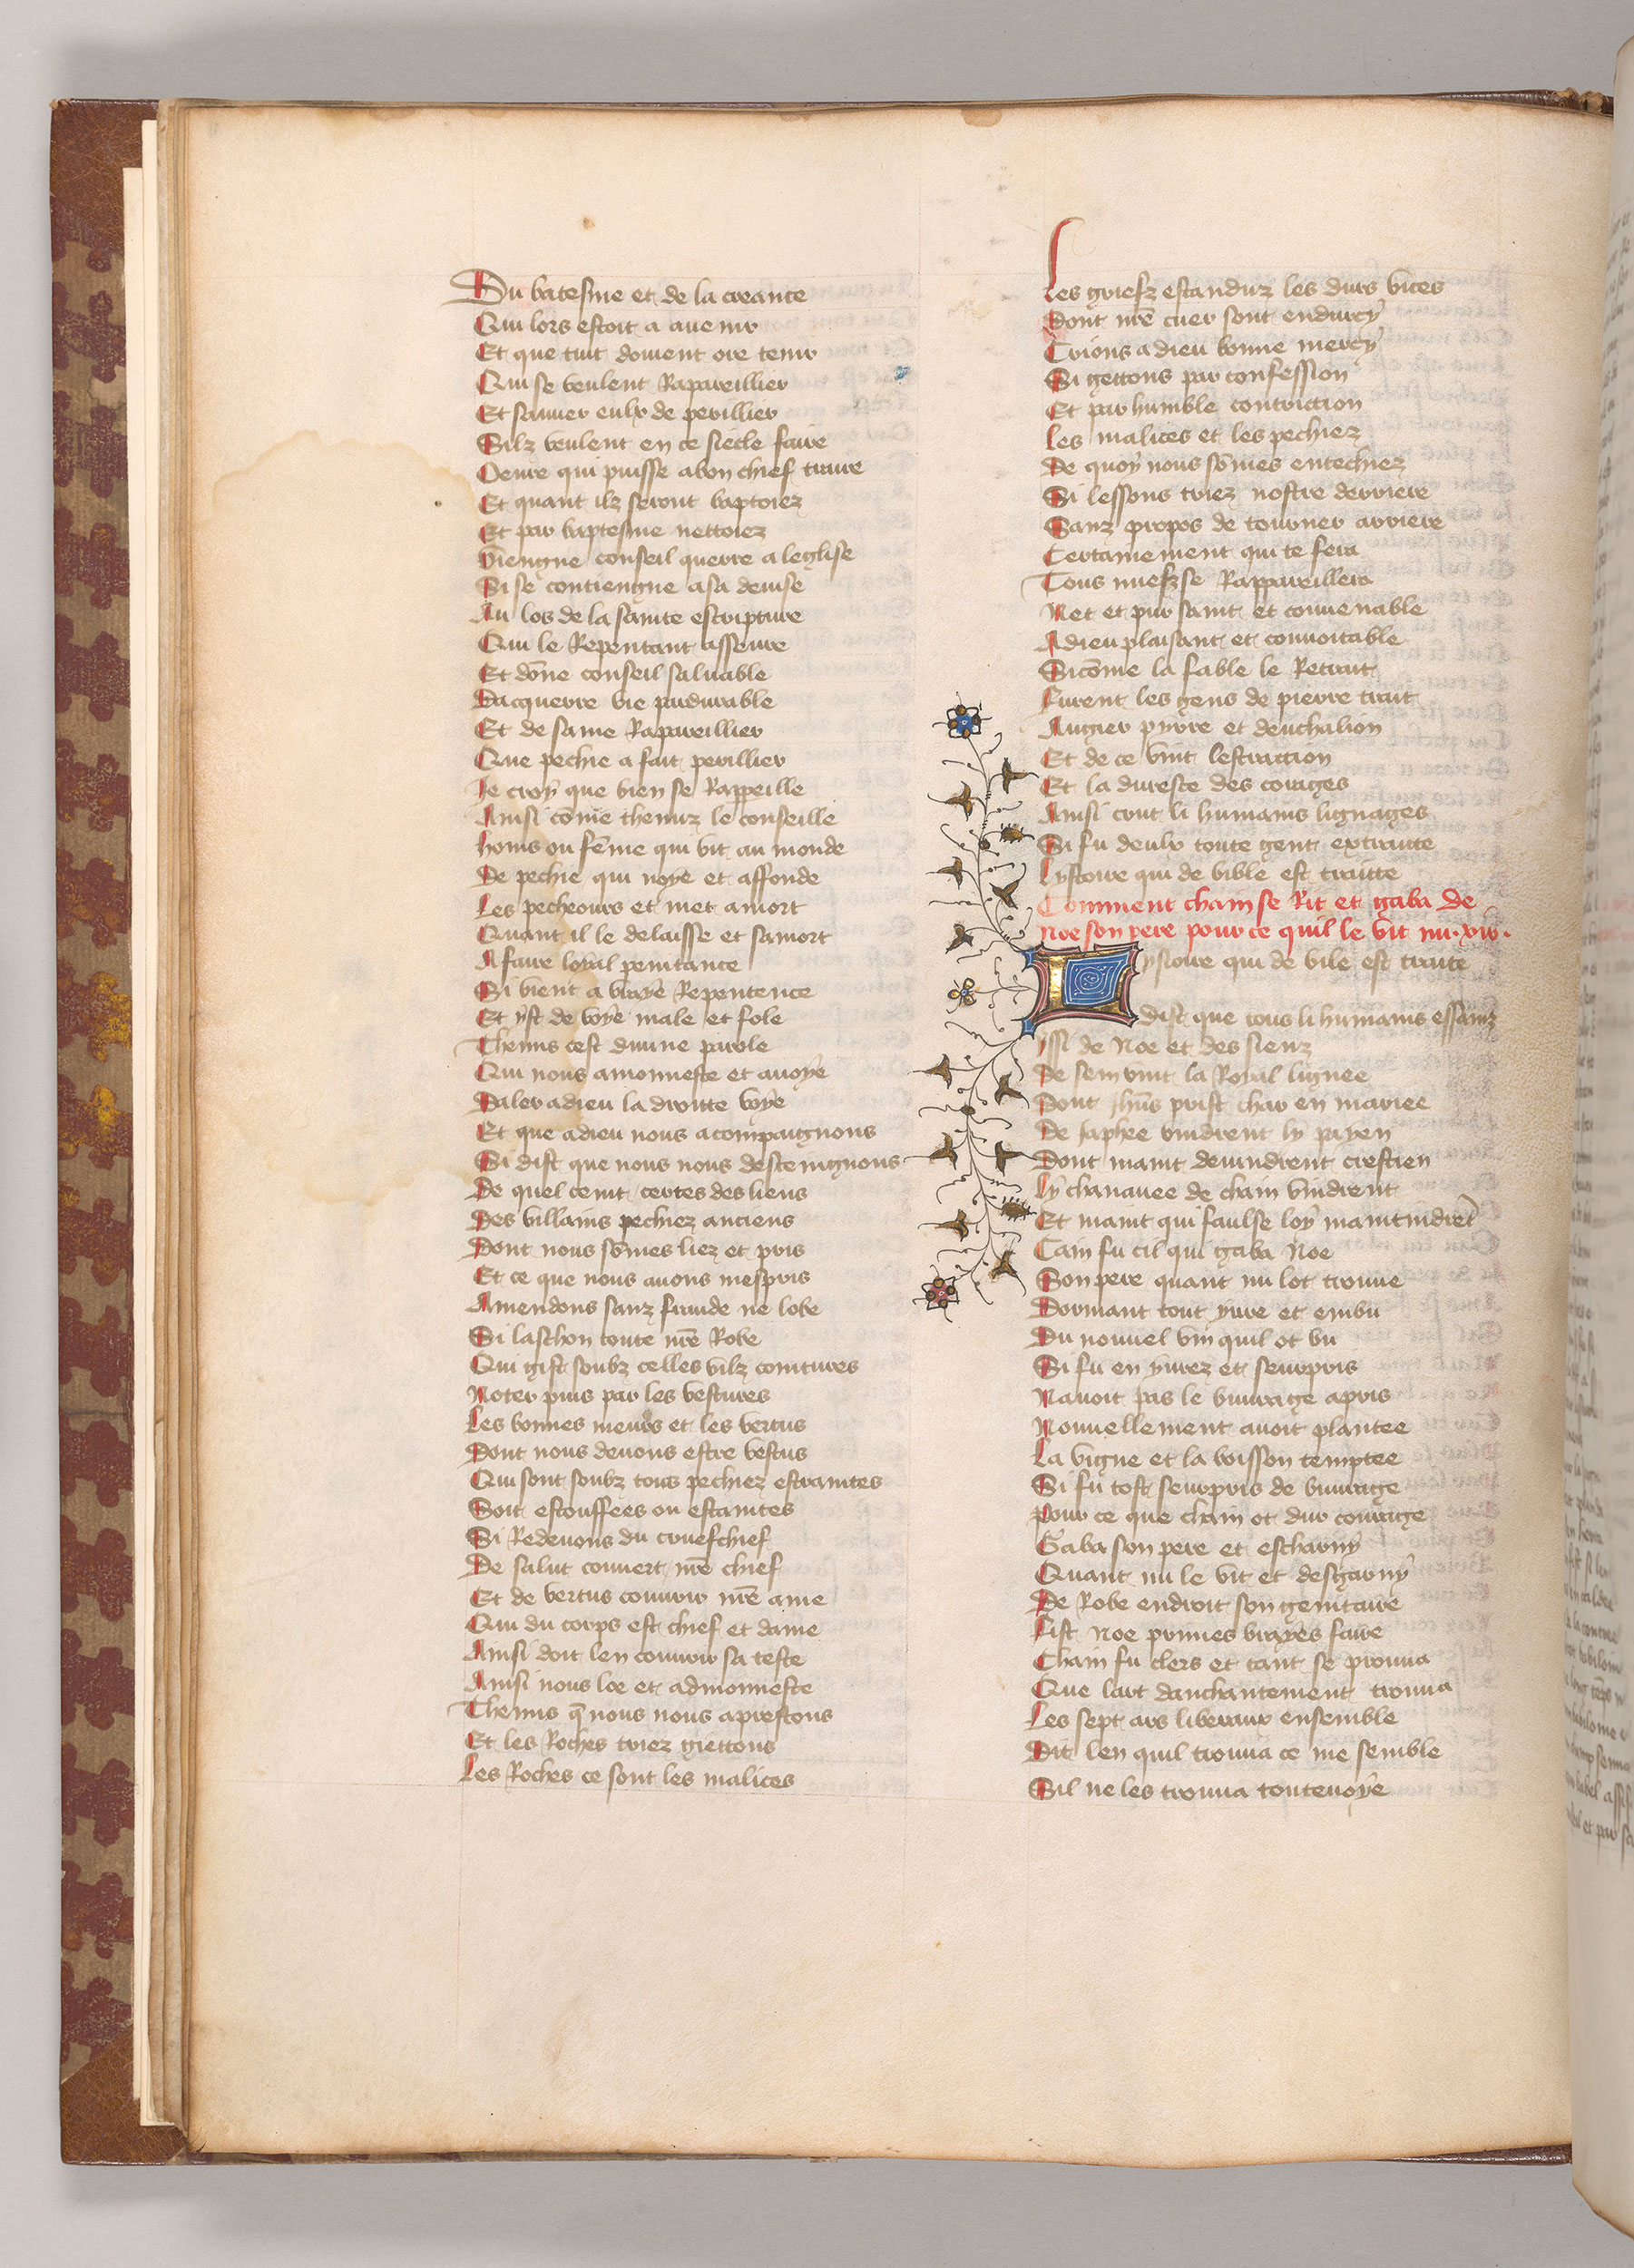 Du batesme et de la creante
Qui lors estoit a auenir
Et que tuit doiuent ore tenir
Qui se veulent Rapareillier
Et sauuer eulx de perillier
Silz veulent en ce siecle faire
Oeure qui puisse a bon chief traire
Et quant ilz seront baptoiez
Et par baptesme nettoiez
Viengne conseil querre a leglise
Si se contiengne a sa deuise
Au los de la sainte escripture
Qui le Repentant asseure
Et dōne conseil saluable
Dacquerre vie pardurable
Et de same Rapareillier
Que pechie a fait perillier
Je croy que bien se Rappeille
Ainsi cōme themiz le conseille
homs ou fēme qui vit au monde
De pechie qui noye et affonde
Les pecheours et met a mort
Quant il le delaisse et samort
A faire loyal penitance
Si vient a vraye Repentence
Et yst de voye male et fole
Themis cest diuine parole
Qui nous amonneste et auoye
Daler a dieu la droitte voye
Et que a dieu nous acompaignons
Si dist que nous nous desceingnons
De quel ceint certes des liens
Des villains pechiez anciens
Dont nous sōmes liez et pris
Et ce que nous auons mespris
Amendons sanz fraude ne lobe
Si laschon toute nr̄e Robe
Qui gist soubz celles vilz ceintures
Noter puis par les vestures
Les bonnes meurs et les vertus
Dont nous deuons estre vestus
Qui sont soubz tous pechiez estraintes
Soit estouffees ou estaintes
Si Redeuons du cruefchief
De salut couuert nr̄e chief
Et de vertus couurir nr̄e ame
Qui du corps est chief et dame
Ainsi doit len couurir sa teste
Ainsi nous loe et admonneste
Themis q̄ nous nous aprestons
Et les Roches triez giettons
Les Roches ce sont les malices
Les griefz estanduz les durs vices
Dont nr̄e cuer sont endurcy
Crions a dieu bonne mercy
Si gettons par confession
Et par humble contriction
Les malices et les pechiez
De quoy nous sōmes entechiez
Si lessons triez nostre derriere
Sanz propos de tourner arriere
Certainement qui te fera
Tous nuefz se Rappareillera
Net et pur saint et couuenable
A dieu plaisant et conuoitable
Si cōme la fable le Retrait
Furent les gens de pierre trait
Augier pyrre et deucalion
Et de ce vint lestraction
Et la dureste des corages
Ainsi tout li humains lignages
Si fu deulx toute gent extraitte
Lystoire qui de bible est traitte
Comment cham se Rit et gaba de
Noe son pere pour ce quil le vit nu . xiiij .
ystoire qui de bile est traite
dist que tous li humains essainz
yssi de Noe et des sienz
De sem vint la Royal lignee
Dont ih̄us prist char en mariee
De Japhee vindrent ly payen
Dont maint deuindrent crestien
Ly chananee de cham vindrent
Et maint qui faulse loy maintindrēt
Cain fu cil qui gaba Noe
Son pere quant nu lot trouue
Dormant tout yure et embu
Du nouuel vin quil ot bu
Si fu en yurez et seurpris
Nauoit pas le buurage apris
Nouuellement auoit plantee
La vigne et la boisson temptee
Si fu tost seurpris de buurage
Pour ce que cham ot dur courage
Gaba son pere et escharny
Quant nu le vit et desgarny
De Robe endroit son genitaire
Fist Noe primes brayes faire
Cham fu clers et tant se prouua
Que lart danchantement trouua
Les sept ars liberaux ensemble
Dit len quil trouua ce me semble
Sil ne les trouua touteuoye